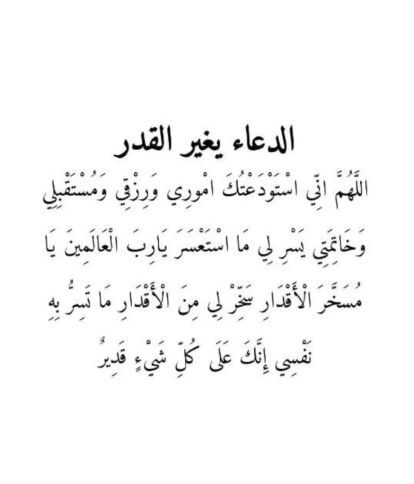 الدعاء يغير القدر
اللَّهُمَّ انِّي اسْتَوْدَعْتُكَ امْورِي وَرِزْقِي وَمُسْتَقْبِلِي
وَخَاتِمَتِي يَسْرِ لِي مَا اسْتَعْسَرَ يَارِبَ الْعَالَمِينَ يَا
مُسَخَّرَ الْأَقْدَارِ سَخِّرْ لِي مِنَ الْأَقْدَارِ مَا تَسِرُّ بِهِ
نَفْسِي إِنَّكَ عَلَى كُلِّ شَيْءٍ قَدِيرٌ